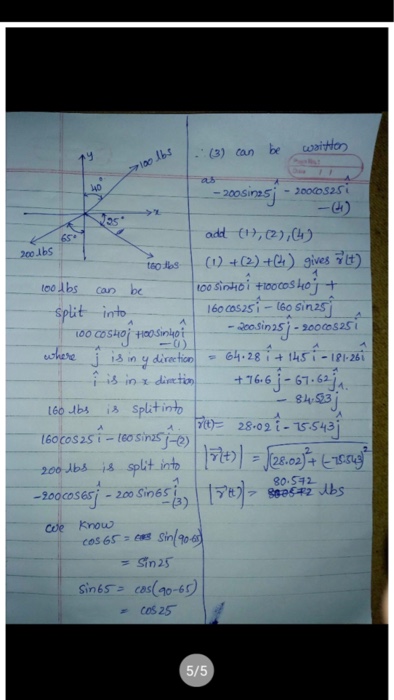 y
100 lbs
40°
x
25°
65°
200 lbs
160 lbs
100 lbs can be
split into
100 cos40ĵ + 100 sin40î
—(1)
where ĵ is in y direction
î is in x direction
160 lbs is split into
160 cos25 î - 160 sin25 ĵ —(2)
200 lbs is split into
-200 cos65 ĵ - 200 sin65 î
—(3)
We know
cos65 = sin(90-65)
= sin25
sin65 = cos(90-65)
= cos25
∴ (3) can be written
Date / /
as
-200 sin25 ĵ - 200 cos25 î
—(4)
add (1), (2), (4)
(1) + (2) + (4) gives r⃗(t)
100 sin40 î + 100 cos40 ĵ +
160 cos25 î - 160 sin25 ĵ
- 200 sin25 ĵ - 200 cos25 î
= 64.28 î + 145 î - 181.26 î
+ 76.6 ĵ - 67.62 ĵ
- 84.523 ĵ
r⃗(t) = 28.02 î - 75.543 ĵ
|r⃗(t)| = √(28.02)² + (-75.543)²
|r⃗(t)| = 80.572 lbs
5/5